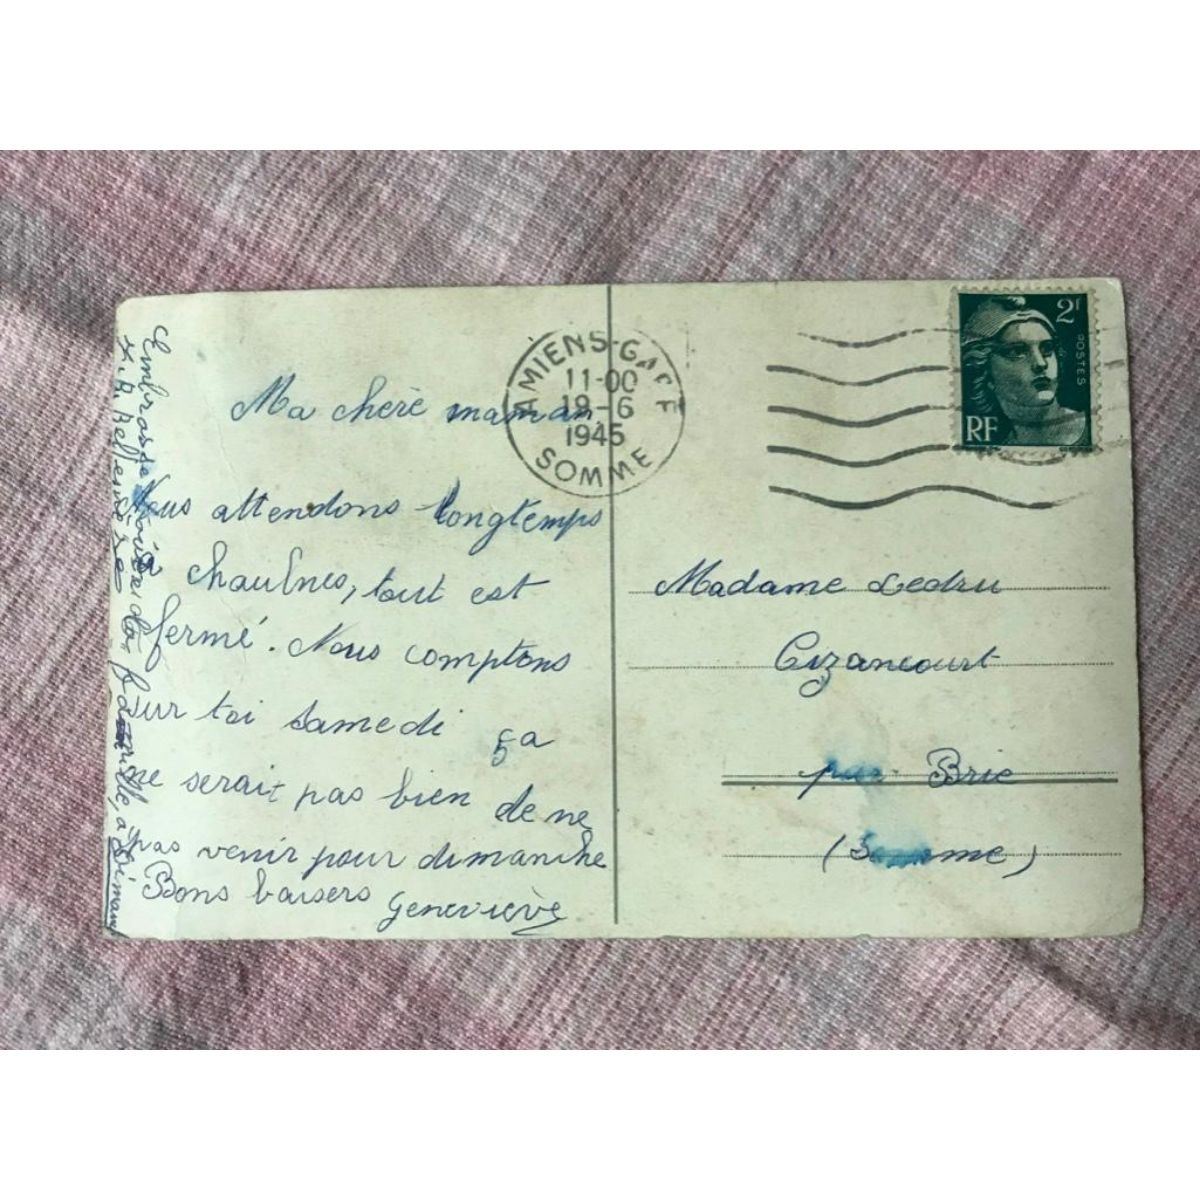 Ma chère maman,
Nous attendons longtemps
à Chaulnes, tout est
fermé. Nous comptons
sur toi samedi ça
ne serait pas bien de ne
pas venir pour dimanche
Bons baisers Geneviève
Embrasse toute la famille, à Dimanche
AMIENS-GARE
11-00
18-6
1945
SOMME
2f
POSTES
RF
Madame Ledru
Cizancourt
par Brie
(Somme)